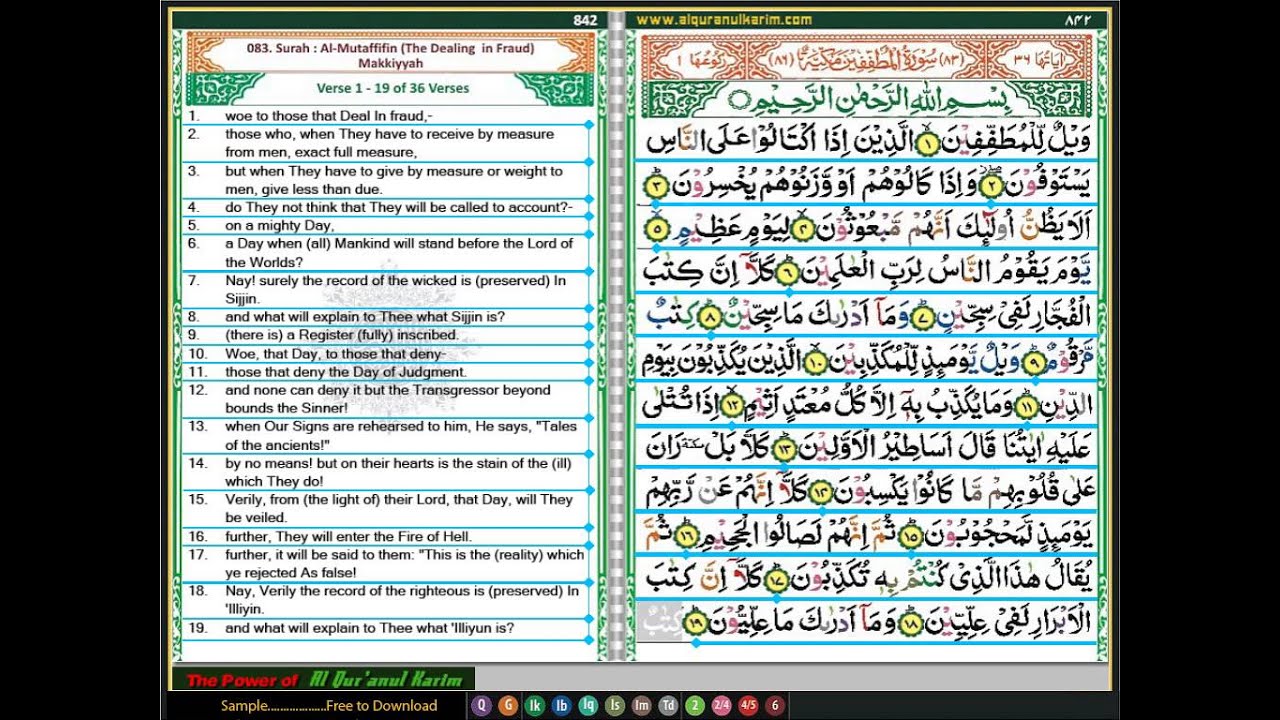 842
083. Surah : Al-Mutaffifin (The Dealing in Fraud)
Makkiyyah
Verse 1 - 19 of 36 Verses
1. woe to those that Deal In fraud,-
2. those who, when They have to receive by measure
from men, exact full measure,
3. but when They have to give by measure or weight to
men, give less than due.
4. do They not think that They will be called to account?-
5. on a mighty Day,
6. a Day when (all) Mankind will stand before the Lord of
the Worlds?
7. Nay! surely the record of the wicked is (preserved) In
Sijjin.
8. and what will explain to Thee what Sijjin is?
9. (there is) a Register (fully) inscribed.
10. Woe, that Day, to those that deny-
11. those that deny the Day of Judgment.
12. and none can deny it but the Transgressor beyond
bounds the Sinner!
13. when Our Signs are rehearsed to him, He says, "Tales
of the ancients!"
14. by no means! but on their hearts is the stain of the (ill)
which They do!
15. Verily, from (the light of) their Lord, that Day, will They
be veiled.
16. further, They will enter the Fire of Hell.
17. further, it will be said to them: "This is the (reality) which
ye rejected As false!
18. Nay, Verily the record of the righteous is (preserved) In
'Illiyin.
19. and what will explain to Thee what 'Illiyun is?
www.alquranulkarim.com ۸۴۲
اٰیَاتُهَا ۳۶ (۸۳) سُوْرَةُ الْمُطَفِّفِيْنَ مَكِّيَّةٌ (۸۶) رُكُوْعُهَا ۱
بِسْمِ اللّٰهِ الرَّحْمٰنِ الرَّحِيْمِ
وَيْلٌ لِّلْمُطَفِّفِيْنَ ۱ الَّذِيْنَ اِذَا اكْتَالُوْا عَلَى النَّاسِ
يَسْتَوْفُوْنَ ۲ وَاِذَا كَالُوْهُمْ اَوْ وَّزَنُوْهُمْ يُخْسِرُوْنَ ۳
اَلَا يَظُنُّ اُولٰٓئِكَ اَنَّهُمْ مَّبْعُوْثُوْنَ ۴ لِيَوْمٍ عَظِيْمٍ ۵
يَّوْمَ يَقُوْمُ النَّاسُ لِرَبِّ الْعٰلَمِيْنَ ۶ كَلَّاۤ اِنَّ كِتٰبَ
الْفُجَّارِ لَفِيْ سِجِّيْنٍ ۷ وَمَاۤ اَدْرٰىكَ مَا سِجِّيْنٌ ۸ كِتٰبٌ
مَّرْقُوْمٌ ۹ وَيْلٌ يَّوْمَئِذٍ لِّلْمُكَذِّبِيْنَ ۱۰ الَّذِيْنَ يُكَذِّبُوْنَ بِيَوْمِ
الدِّيْنِ ۱۱ وَمَا يُكَذِّبُ بِهٖۤ اِلَّا كُلُّ مُعْتَدٍ اَثِيْمٍ ۱۲ اِذَا تُتْلٰى
عَلَيْهِ اٰيٰتُنَا قَالَ اَسَاطِيْرُ الْاَوَّلِيْنَ ۱۳ كَلَّا بَلْ سكتة رَانَ
عَلٰى قُلُوْبِهِمْ مَّا كَانُوْا يَكْسِبُوْنَ ۱۴ كَلَّاۤ اِنَّهُمْ عَنْ رَّبِّهِمْ
يَوْمَئِذٍ لَّمَحْجُوْبُوْنَ ۱۵ ثُمَّ اِنَّهُمْ لَصَالُوا الْجَحِيْمِ ۱۶ ثُمَّ
يُقَالُ هٰذَا الَّذِيْ كُنْتُمْ بِهٖ تُكَذِّبُوْنَ ۱۷ كَلَّاۤ اِنَّ كِتٰبَ
الْاَبْرَارِ لَفِيْ عِلِّيِّيْنَ ۱۸ وَمَاۤ اَدْرٰىكَ مَا عِلِّيُّوْنَ ۱۹ كِتٰبٌ
The Power of Al Qur'anul Karim
Sample...................Free to Download Q G Ik Ib Iq Is Im Td 2 2/4 4/5 6